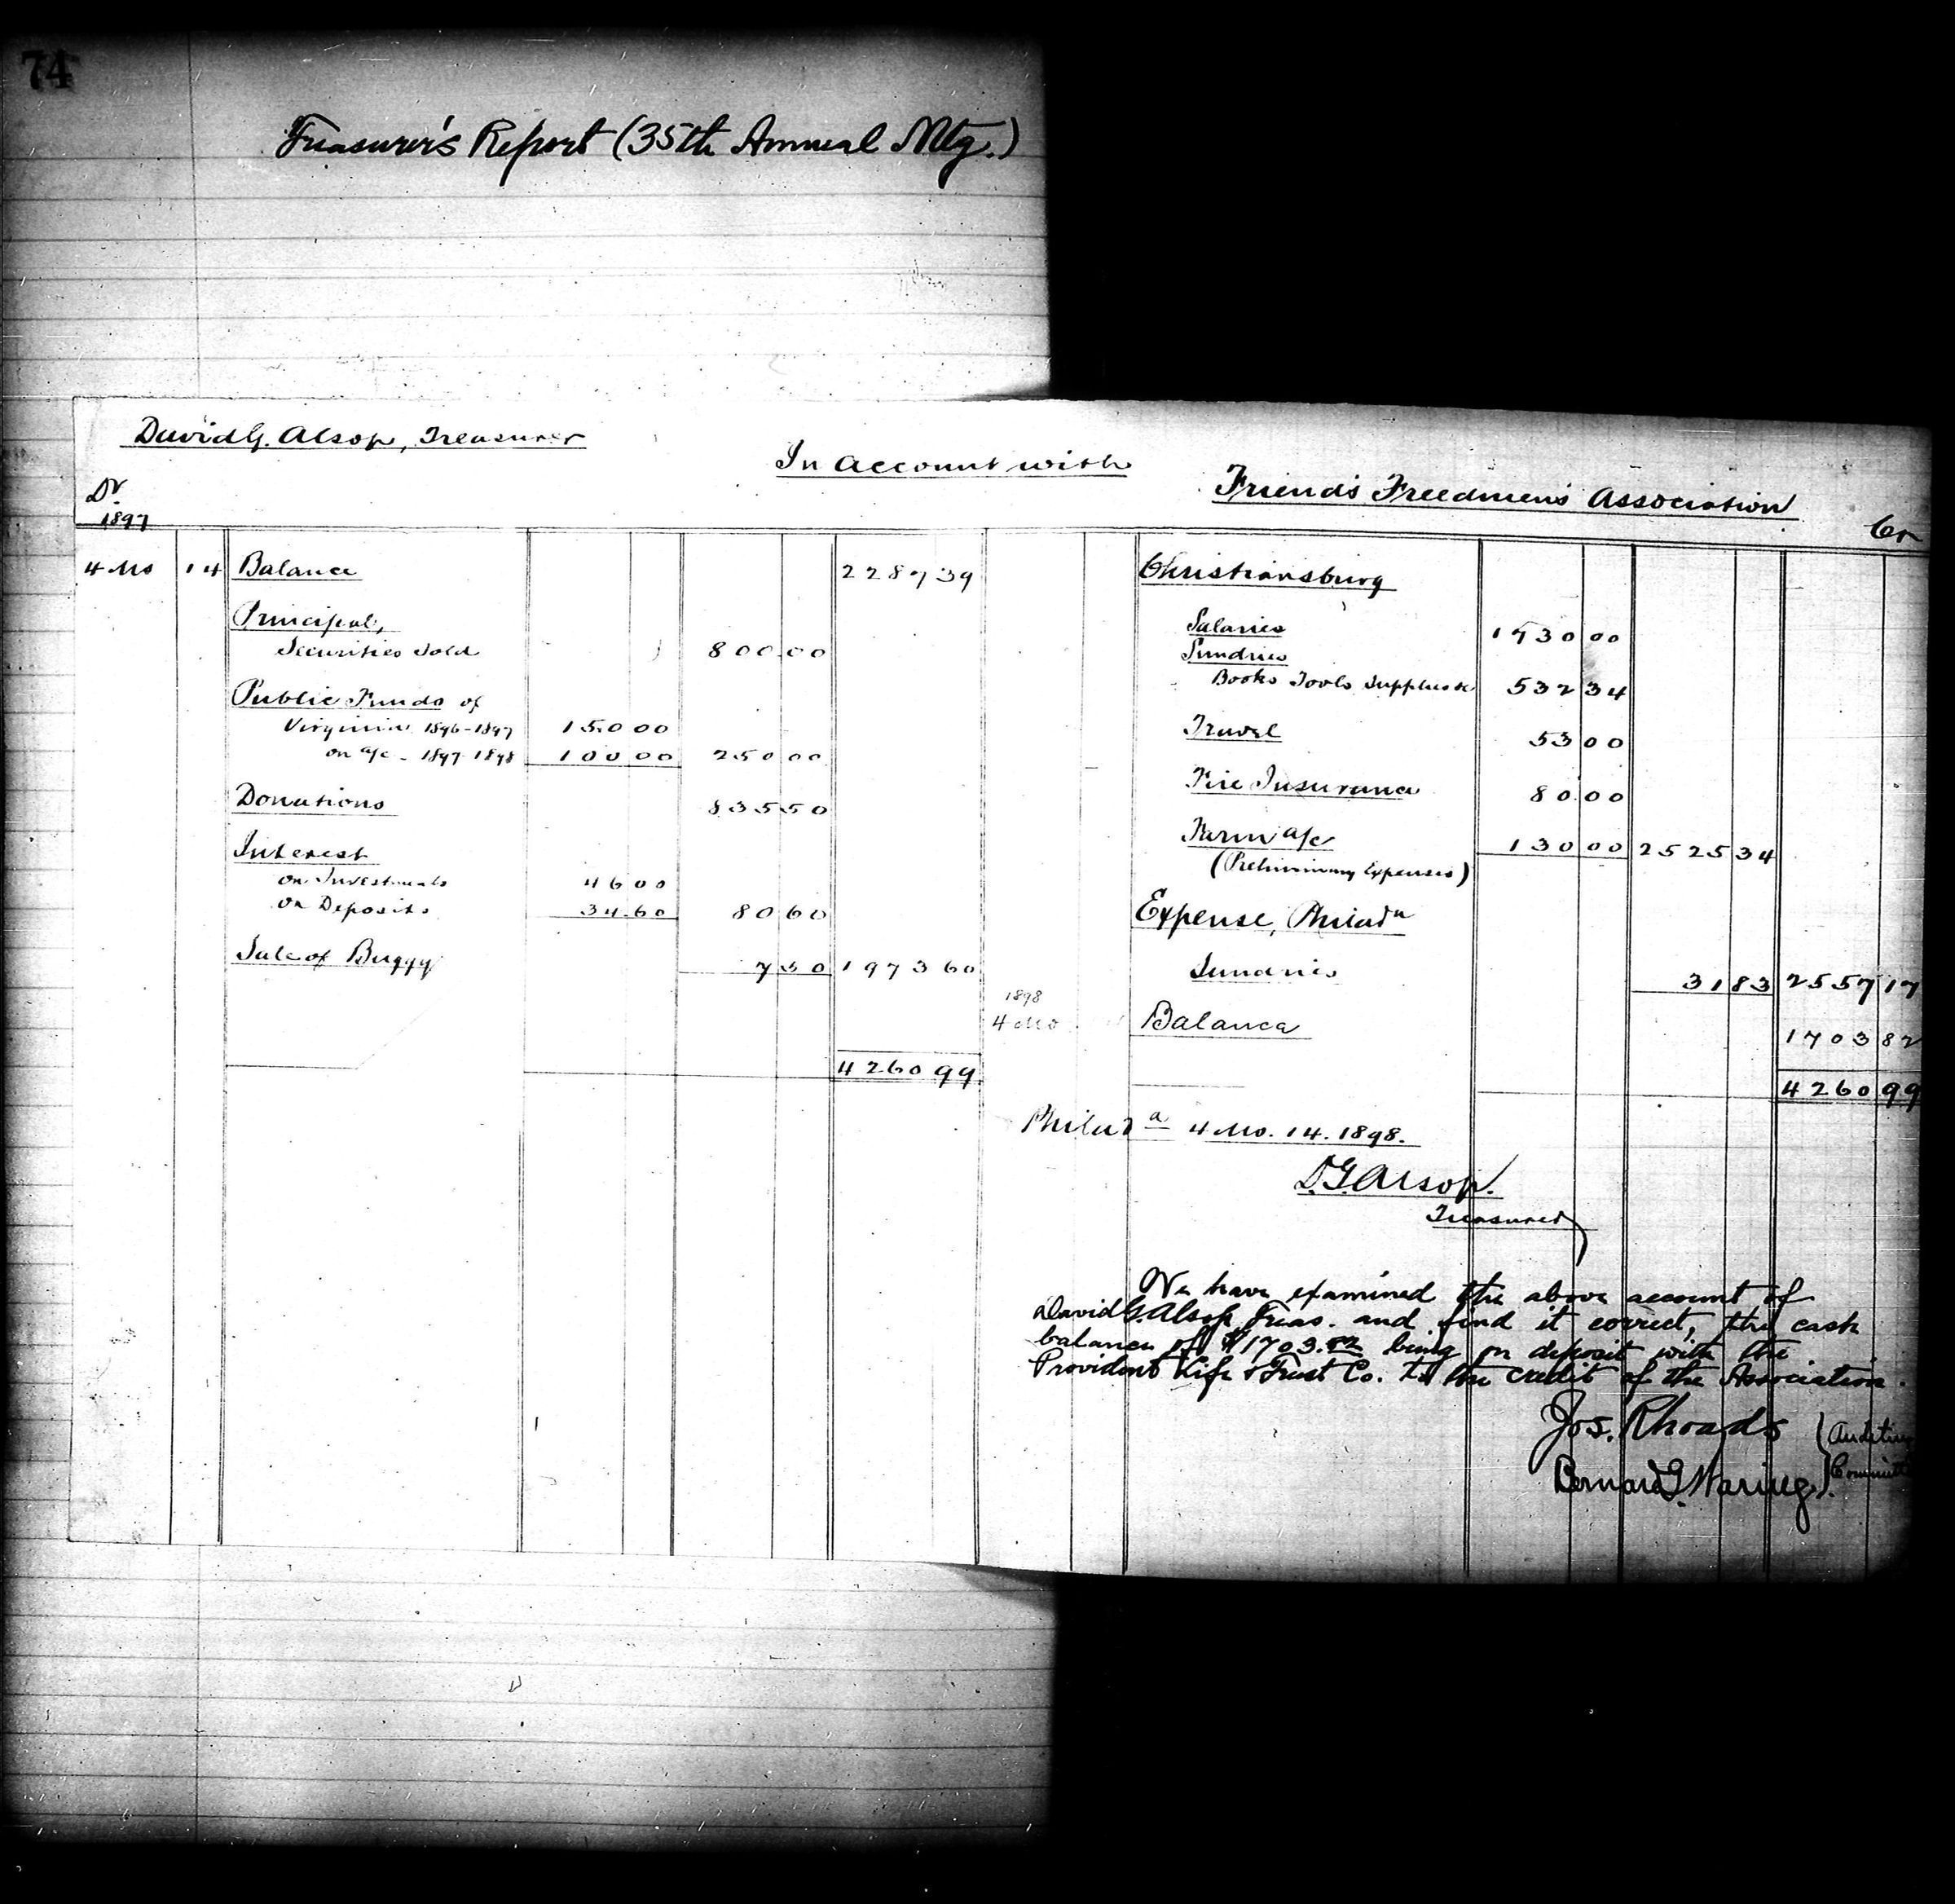 74
Treasurer's Report (35th Annual Mtg.)
David G. Alsop, Treasurer
In account with
Friends Freedmen's Association
Dr
1897
Cr
4 Mo 14 Balance 2287 39
Principal,
Securities Sold 800 00
Public Funds of
Virginia 1896-1897 150 00
on a/c - 1897-1898 100 00 250 00
Donations 835 50
Interest
on Investments 46 00
on Deposits 34.60 80 60
Sale of Buggy 7 50 1973 60
4260 99
Christiansburg
Salaries 1730 00
Sundries
Books Tools Supplies &c 532 34
Travel 53 00
Fire Insurance 80.00
Farm a/c 130 00 2525 34
(Preliminary Expenses)
Expense, Philada
Sundries 31 83 2557 17
1898
4 Mo Balance 1703 82
4260 99
Philada 4 Mo. 14. 1898.
D.G. Alsop.
Treasurer
We have examined the above account of
David G. Alsop Treas. and find it correct, the cash
balance of $1703.82 being on deposit with the
Provident Life & Trust Co. to the credit of the Association.
Jos. Rhoads
Auditing
Bernard G. Waring.
Committ